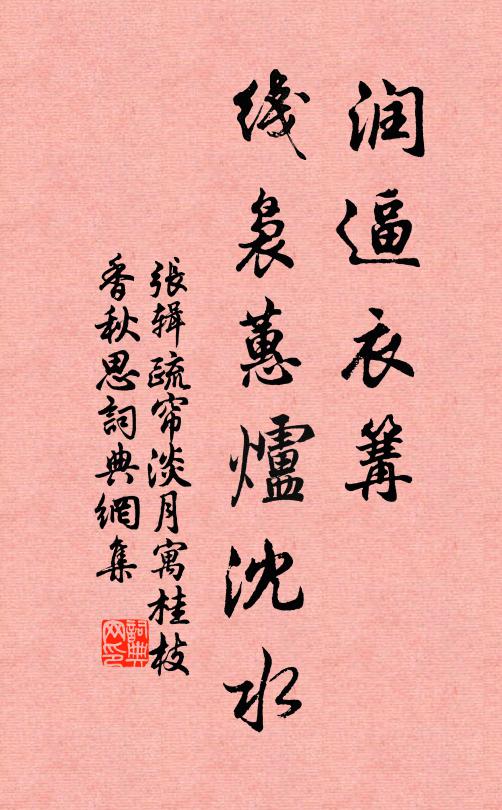 润逼衣篝
线袅蕙爐沈水
張辑疏帘淡月寓桂枝
香秋思詞典網集
詞典
网印